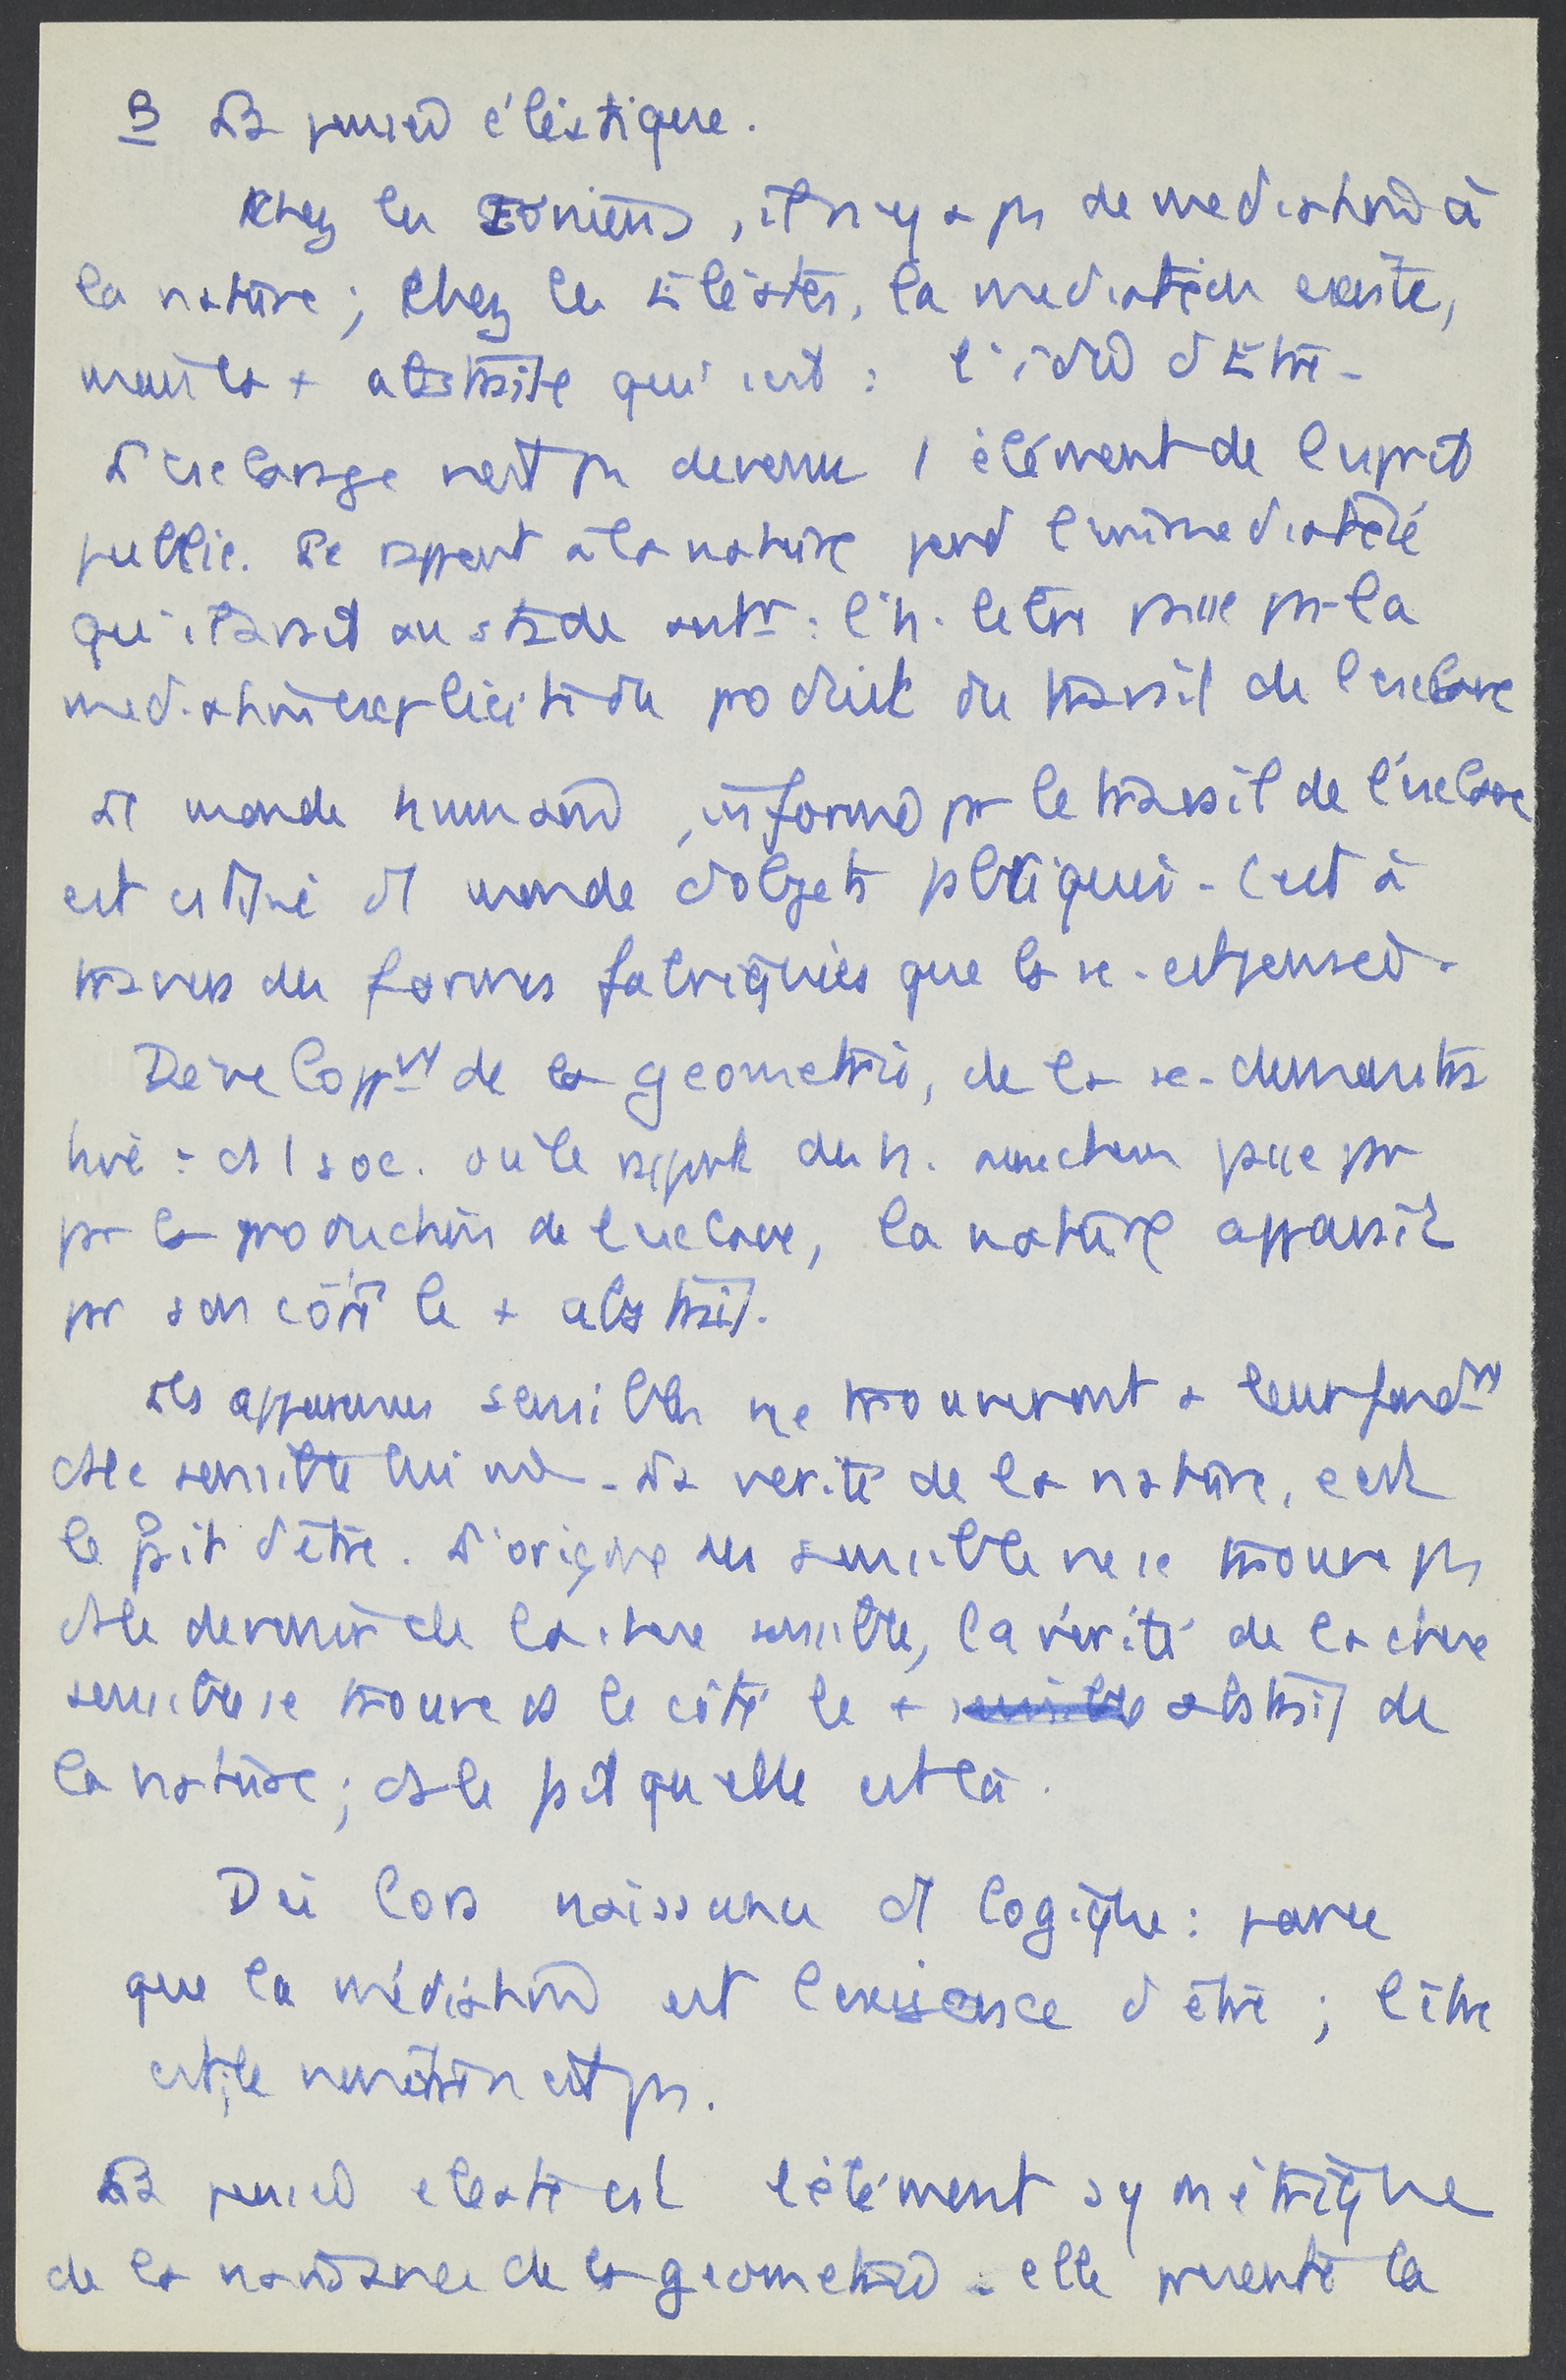 B La pensée éléatique.
Chez les Ioniens, il n'y a ps de mediation à
la nature ; Chez les Eléates, la mediation existe,
mais la + abstraite qui soit : l'idée d'Etre.
L'esclavage n'est ps devenu 1 élément de l'esprit
public. Le rapport à la nature perd l'immediateté
qu'il avait au stade antr : l'h. libre passe pr la
mediation explicite du produit du travail de l'esclave
Le monde humain, informé pr le travail de l'esclave
est un monde d'objets fabriqués. C'est à
travers des formes fabriquées que la se. est pensée.
Developpt de la geometrie, de la sc. demonstra
tive : ds 1 soc. où le rapport des h. passe pr
pr la production de l'esclave, la nature apparait
pr son côté le + abstrait.
Les apparences sensibles ne trouveront + leur fondt
ds le sensible lui mê. La verité de la nature, c'est
le fait d'être. L'origine du sensible ne se trouve ps
ds le devenir de la chose sensible, la vérité de la chose
sensible se trouve ds le côté le + sensible abstrait de
la nature ; ds le fait qu'elle est là.
Dès lors naissance d logique : parce
que la médiation est l'exigence d'être ; l'être
est, le non être n'est ps.
La pensée eleate est l'élément symétrique
de la naissance de la geometrie. elle presente la